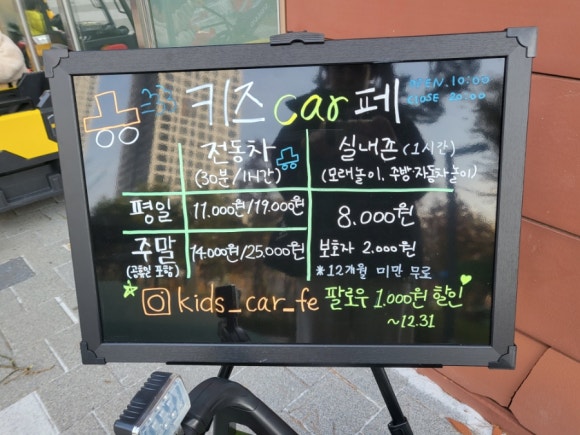 키즈 car 페
OPEN. 10:00
CLOSE 20:00
전동차
(30분/1시간)
실내존 (1시간)
(모래놀이, 주방·자동차놀이)
평일
11.000원/19.000원
8.000원
주말
(공휴일 포함)
14.000원/25.000원
보호자 2.000원
*12개월 미만 무료
kids_car_fe 팔로우 1.000원 할인
~12.31